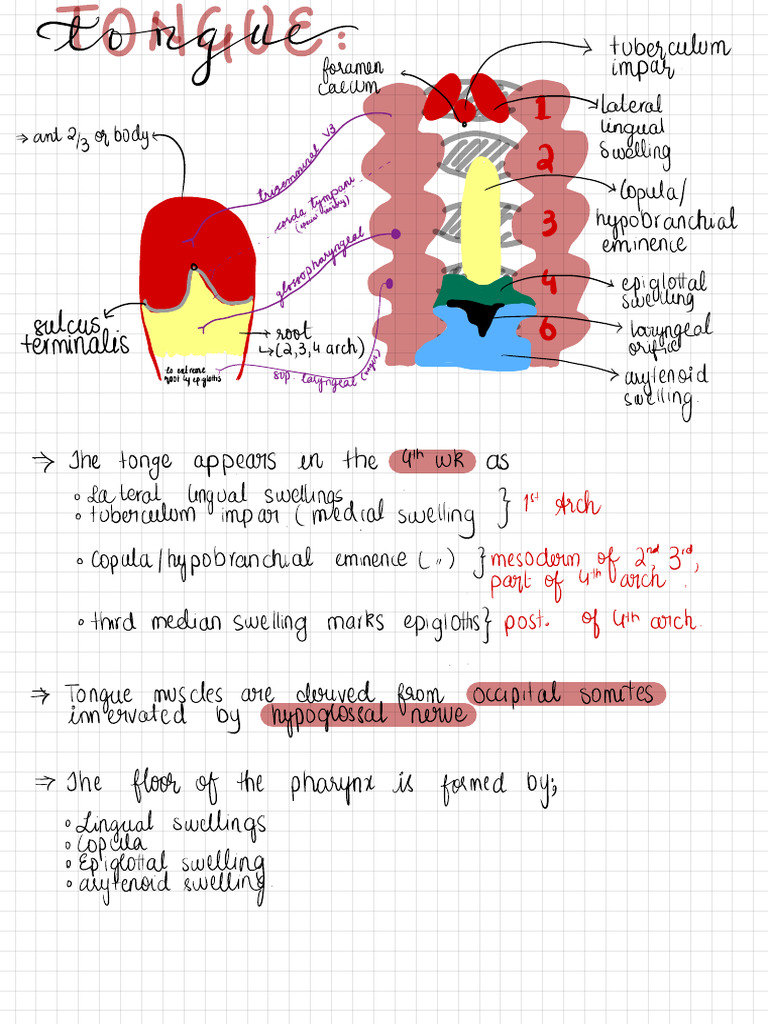 TONGUE:
tongue
foramen
caecum
tuberculum
impar
lateral
lingual
swelling
⇒ ant 2/3 or body
trigeminal V3
corda tympani
glossopharyngeal
sup. laryngeal (vagus)
1
2
3
4
6
Copula/
hypobranchial
eminence
epiglottal
swelling
laryngeal
orific
arytenoid
swelling.
sulcus
terminalis
root
(2,3,4 arch)
to extreme
root by epiglottis
⇒ The tonge appears in the 4th wk as
• Lateral lingual swellings
• tuberculum impar (medial swelling } 1st Arch
• Copula/hypobranchial eminence ( " ) } mesoderm of 2nd, 3rd,
part of 4th arch.
• third median swelling marks epiglottis } post. of 4th arch.
⇒ Tongue muscles are derived from occipital somites
innervated by hypoglossal nerve
⇒ The floor of the pharynx is formed by;
• Lingual swellings
• Copula
• Epiglottal swelling
• arytenoid swelling.